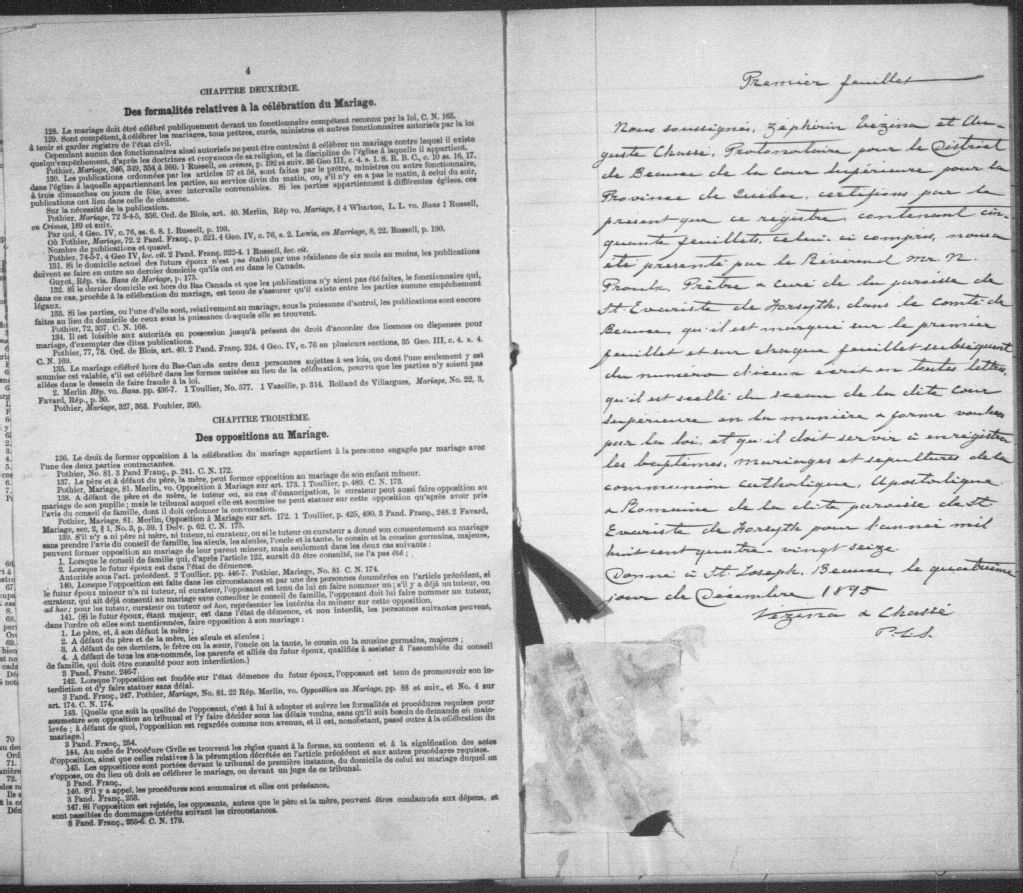 4
CHAPITRE DEUXIÈME.
Des formalités relatives à la célébration du Mariage.
128. Le mariage doit être célébré publiquement devant un fonctionnaire compétent reconnu par la loi, C. N. 165.
129. Sont compétent, à célébrer les mariages, tous prêtres, curés, ministres et autres fonctionnaires autorisés par la loi
à tenir et garder registre de l'état civil.
Cependant aucun des fonctionnaires ainsi autorisés ne peut être contraint à célébrer un mariage contre lequel il existe
quelqu'empêchement, d'après les doctrines et croyances de sa religion, et la discipline de l'église à laquelle il appartient.
Pothier, Mariage, 346, 349, 354 à 360. 1 Russell, on crimes, p. 192 et suiv. 36 Geo III, c. 4. s. 1. S. R. B. C., c. 20 ss. 16, 17.
130. Les publications ordonnées par les articles 57 et 58, sont faites par le prêtre, ministre ou autre fonctionnaire,
dans l'église à laquelle appartiennent les parties, au service divin du matin, ou, s'il n'y en a pas le matin, à celui du soir,
à trois dimanches ou jours de fête, avec intervalle convenables. Si les parties appartiennent à différentes églises, ces
publications ont lieu dans celle de chacune.
Sur la nécessité de la publication.
Pothier, Mariage, 72 3-4-5, 356. Ord. de Blois, art. 40. Merlin, Rép vo. Mariage, § 4 Wharton, L. L. vo. Bans 1 Russell,
on Crimes, 189 et suiv.
Par qui, 4 Geo. IV, c. 76, ss. 6. 8. 1. Russell, p. 193.
Où Pothier, Mariage, 72. 2 Pand. Franç., p. 321. 4 Geo. IV, c. 76, s. 2. Lewis, on Marriage, 8, 22. Russell, p. 190.
Nombre de publications et quand.
Pothier, 74-5-7. 4 Geo IV, loc. cit. 2 Pand. Franç. 322-4. 1 Russell, loc. cit.
131. Si le domicile actuel des futurs époux n'est pas établi par une résidence de six mois au moins, les publications
doivent se faire en outre au dernier domicile qu'ils ont eu dans le Canada.
Guyot, Rép. vis. Bans de Mariage, p. 175.
132. Si le dernier domicile est hors du Bas Canada et que les publications n'y aient pas été faites, le fonctionnaire qui,
dans ce cas, procède à la célébration du mariage, est tenu de s'assurer qu'il existe entre les parties aucune empêchement
légaux.
133. Si les parties, ou l'une d'elle sont, relativement au mariage, sous la puissance d'autrui, les publications sont encore
faites au lieu du domicile de ceux sous la puissance desquels elle se trouvent.
Pothier, 72, 357. C. N. 168.
134. Il est loisible aux autorités en possession jusqu'à présent du droit d'accorder des licences ou dispenses pour
mariage, d'exempter des dites publications.
Pothier, 77, 78. Ord. de Blois, art. 40. 2 Pand. Franç. 324. 4 Geo. IV, c. 76 en plusieurs sections, 35 Geo. III, c. 4. s. 4.
C. N. 169.
135. Le mariage célébré hors du Bas-Canada entre deux personnes sujettes à ses lois, ou dont l'une seulement y est
soumise est valable, s'il est célébré dans les formes usitées au lieu de la célébration, pourvu que les parties n'y soient pas
allées dans le dessein de faire fraude à la loi.
2. Merlin Rép. vo. Bans. pp. 436-7. 1 Toullier, No. 577. 1 Vazeille, p. 314. Rolland de Villargues, Mariage, No. 22, 3,
Favard, Rép., p. 30.
Pothier, Mariage, 327, 363. Pouhier, 390.
CHAPITRE TROISIÈME.
Des oppositions au Mariage.
136. Le droit de former opposition à la célébration du mariage appartient à la personne engagée par mariage avec
l'une des deux parties contractantes.
Pothier, No. 81. 3 Pand Franç., p. 241. C. N. 172.
137. Le père et à défaut du père, la mère, peut former opposition au mariage de son enfant mineur.
Pothier, Mariage, 81. Merlin, vo. Opposition à Mariage sur art. 173. 1 Toullier, p. 489. C. N. 173.
138. A défaut de père et de mère, le tuteur ou, au cas d'émancipation, le curateur peut aussi faire opposition au
mariage de son pupille ; mais le tribunal auquel elle est soumise ne peut statuer sur cette opposition qu'après avoir pris
l'avis du conseil de famille, dont il doit ordonner la convocation.
Pothier, Mariage, 81. Merlin, Opposition à Mariage sur art. 172. 1 Toullier, p. 425, 490. 3 Pand. Franç., 248. 2 Favard,
Mariage, sec. 2, § 1, No. 3, p. 59. 1 Delv. p. 62. C. N. 175.
139. S'il n'y a ni père ni mère, ni tuteur, ni curateur, ou si le tuteur ou curateur a donné son consentement au mariage
sans prendre l'avis du conseil de famille, les aïeuls, les aïeules, l'oncle et la tante, le cousin et la cousine germains, majeurs,
peuvent former opposition au mariage de leur parent mineur, mais seulement dans les deux cas suivants :
1. Lorsque le conseil de famille qui, d'après l'article 122, aurait dû être consulté, ne l'a pas été ;
2. Lorsque le futur époux est dans l'état de démence.
Autorités sous l'art. précédent. 2 Toullier, pp. 446-7. Pothier, Mariage, No. 81- C. N. 174.
140. Lorsque l'opposition est faite dans les circonstances et par une des personnes énumérées en l'article précédent, si
le futur époux mineur n'a ni tuteur, ni curateur, l'opposant est tenu de lui en faire nommer un ; s'il y a déjà un tuteur, ou
curateur, qui ait déjà consenti au mariage sans consulter le conseil de famille, l'opposant doit lui faire nommer un tuteur,
ad hoc ; pour les tuteur, curateur ou tuteur ad hoc, représenter les intérêts du mineur sur cette opposition.
141. (Si le futur époux, étant majeur, est dans l'état de démence, et non interdit, les personnes suivantes peuvent,
dans l'ordre où elles sont mentionnées, faire opposition à son mariage :
1. Le père, et, à son défaut la mère ;
2. A défaut du père et de la mère, les aïeuls et aïeules ;
3. A défaut de ces derniers, le frère ou la sœur, l'oncle ou la tante, le cousin ou la cousine germains, majeurs ;
4. A défaut de tous les sus-nommés, les parents et alliés du futur époux, qualifiés à assister à l'assemblée du conseil
de famille, qui doit être consulté pour son interdiction.)
3 Pand. Franc. 246-7.
142. Lorsque l'opposition est fondée sur l'état démence du futur époux, l'opposant est tenu de promouvoir son in-
terdiction et d'y faire statuer sans délai.
3 Pand. Franç., 247. Pothier, Mariage, No. 81. 22 Rép. Merlin, vo. Opposition au Mariage, pp. 88 et suiv., et No. 4 sur
art. 174. C. N. 174.
143. [Quelle que soit la qualité de l'opposant, c'est à lui à adopter et suivre les formalités et procédures requises pour
soumettre son opposition au tribunal et l'y faire décider sous les délais voulus, sans qu'il soit besoin de demande en main-
levée ; à défaut de quoi, l'opposition est regardée comme non avenue, et il est, nonobstant, passé outre à la célébration du
mariage.]
3 Pand. Franç., 254.
144. Au code de Procédure Civile se trouvent les règles quant à la forme, au contenu et à la signification des actes
d'opposition, ainsi que celles relatives à la péremption décrétée en l'article précédent et aux autres procédures requises.
145. Les oppositions sont portées devant le tribunal de première instance, du domicile de celui au mariage duquel on
s'oppose, ou du lieu où doit se célébrer le mariage, ou devant un juge de ce tribunal.
3 Pand. Franç.,
146. S'il y a appel, les procédures sont sommaires et elles ont préséance.
3 Pand. Franç., 253.
147. Si l'opposition est rejetée, les opposants, autres que le père et la mère, peuvent êtres condamnés aux dépens, et
sont passibles de dommages-intérêts suivant les circonstances.
3 Pand. Franç., 255-6. C. N. 179.
Premier feuillet
Nous soussignés, Zéphirin Vézina et Au-
guste Chassé, Protonotaire pour le District
de Beauce de la Cour Supérieure pour la
Province de Québec, certifions par la
présent que ce registre, contenant cin-
quante feuillets, celui-ci compris, nous a
été présenté par le Révérend Mr. N.
Proulx, Prêtre & curé de la paroisse de
St. Evariste de Forsyth, dans le comté de
Beauce, qu'il est marqué sur le premier
feuillet et sur chaque feuillet subséquent
du numéro d'iceux écrit en toutes lettres,
qu'il est scellé du sceau de la dite Cour
Supérieure en la manière & forme voulues
par la loi, et qu'il doit servir à enrégistrer
les baptêmes, mariages et sépultures de la
communion Catholique, Apostolique
& Romaine de la dite paroisse de St.
Evariste de Forsyth pour l'année mil
huit cent quatre-vingt seize
Donné à St. Joseph, Beauce, le quatrième
jour de Décembre 1895
Vézina & Chassé
P.C.S.